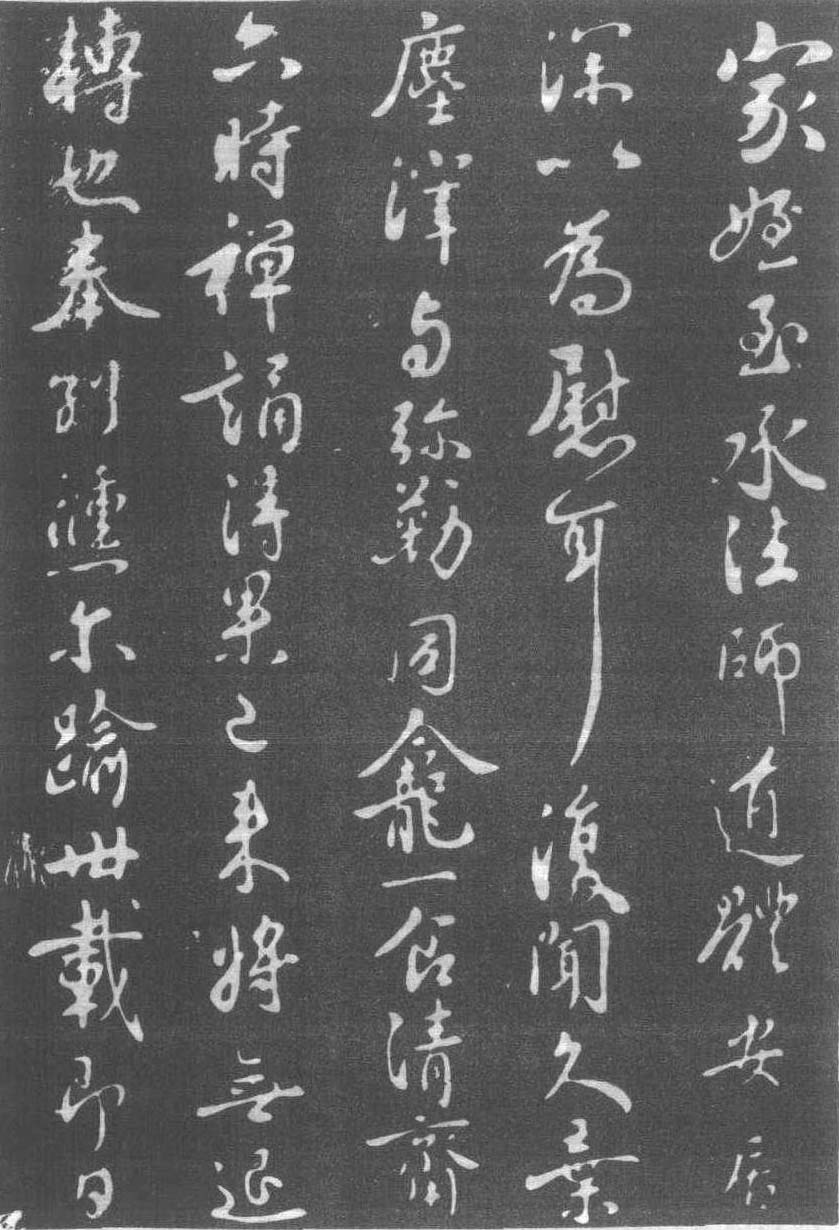 家姪至承法師道體安居
深以為慰耳復聞久棄
塵滓與彌勒同龕一食清齋
六時禪誦得果已來將無退
轉也奉別倏尔踰卅載即日